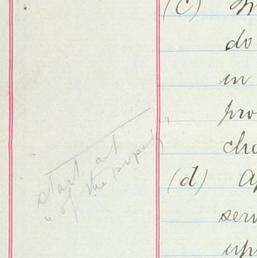 (c)
do
in
pro
cha
(d) Ap
serv
upo
start at
"of the property"